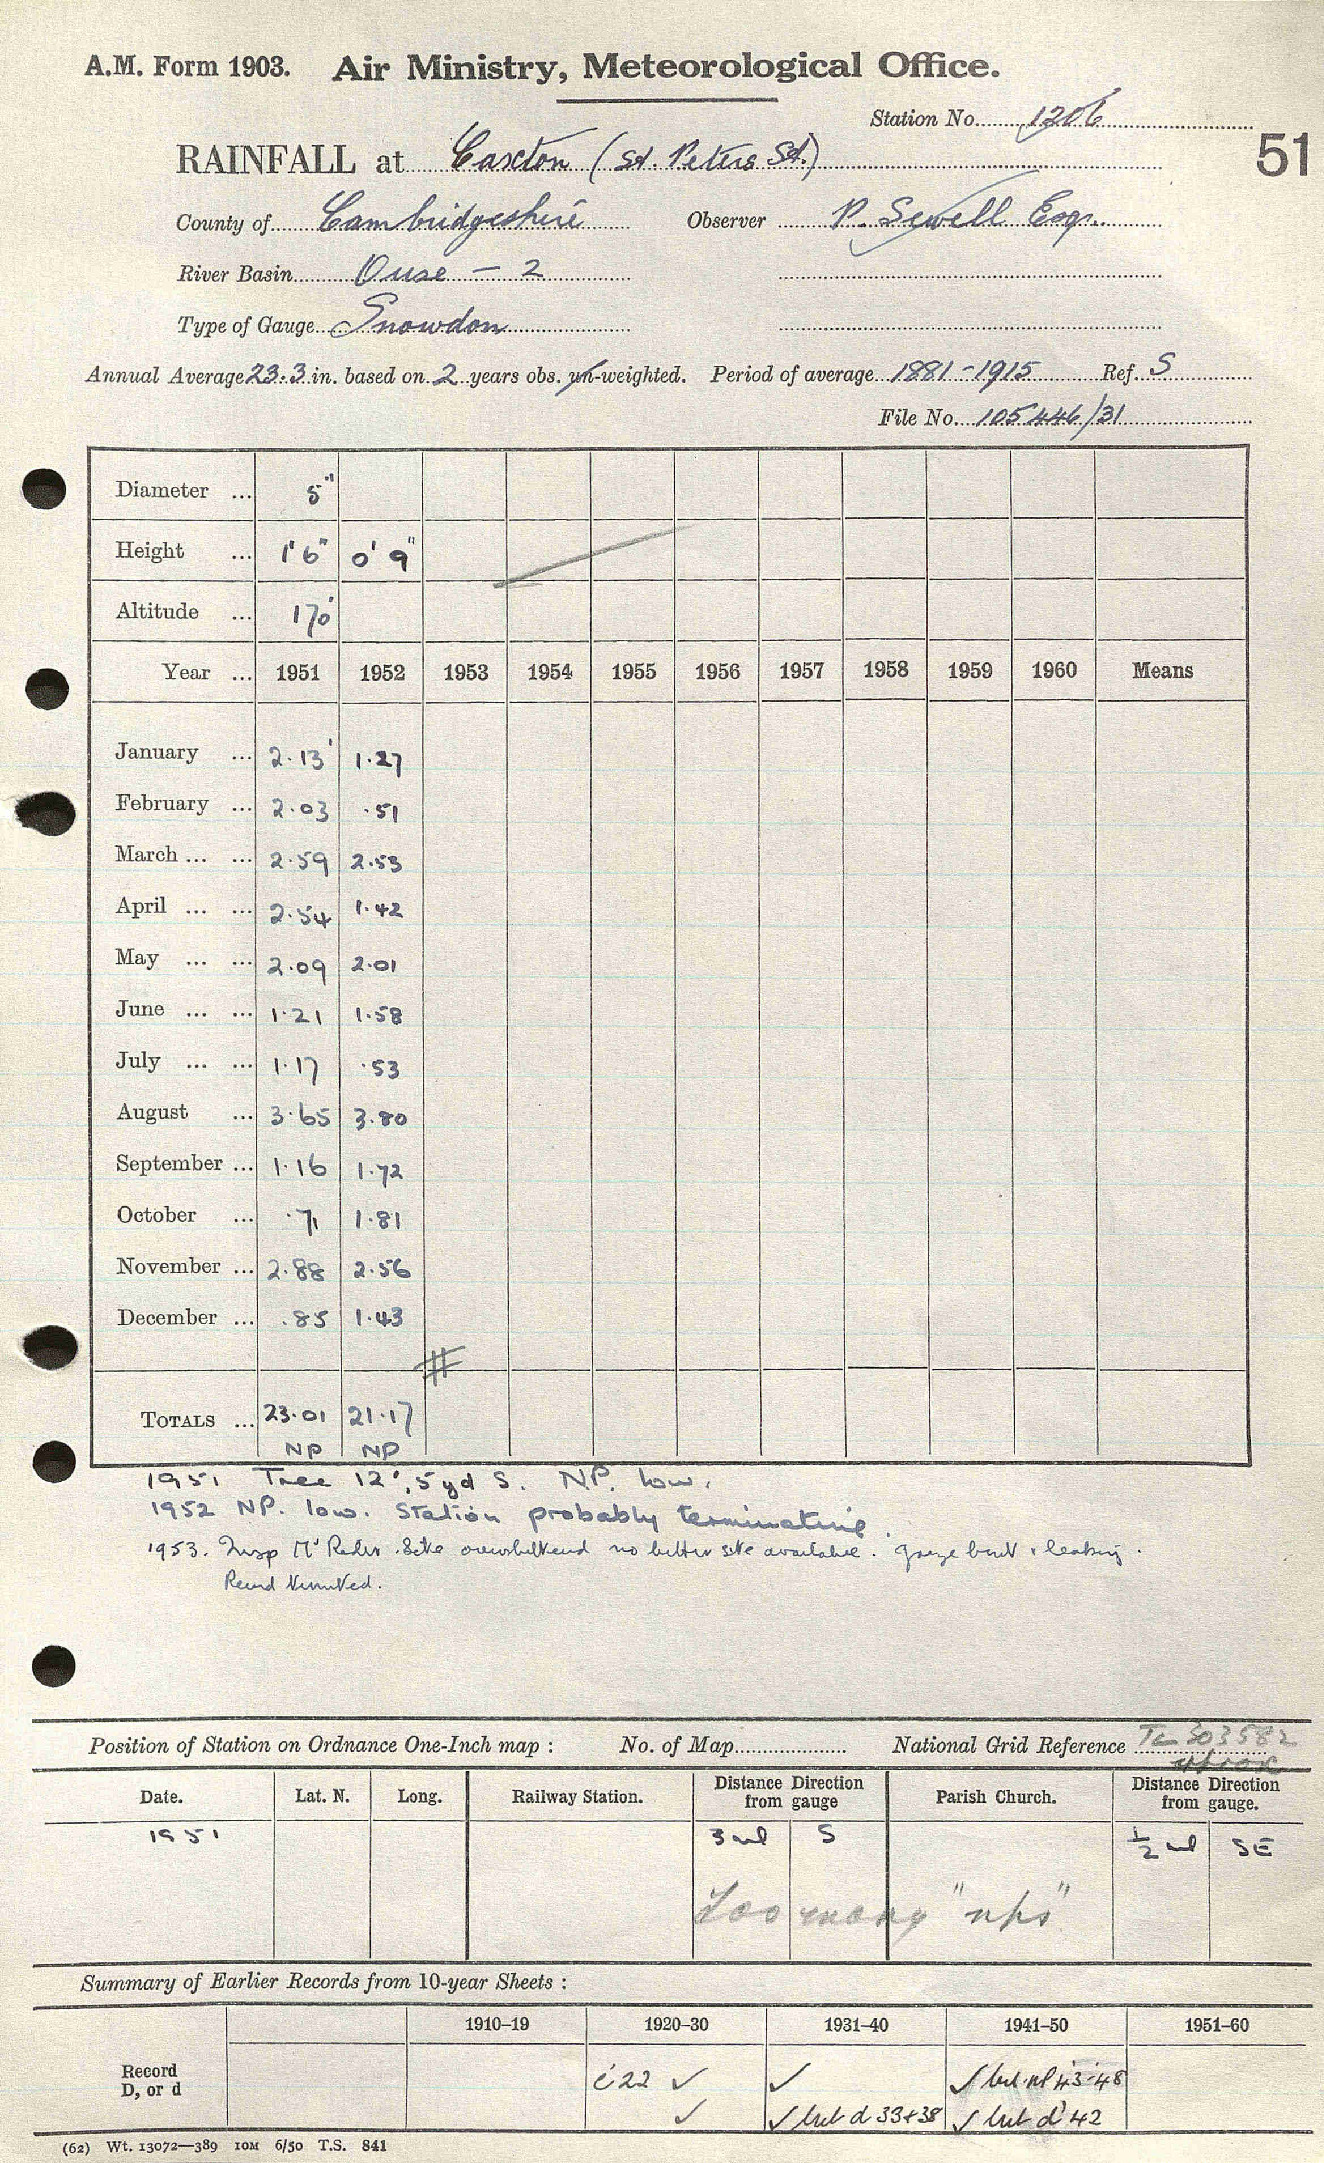 A.M. Form 1903. Air Ministry, Meteorological Office.
Station No. 1206
51
RAINFALL at Caxton (St. Peters St.)
County of Cambridgeshire Observer P. Sewell Esqr.
River Basin Ouse - 2
Type of Gauge Snowdon
Annual Average 23.3 in. based on 2 years obs. un-weighted. Period of average 1881-1915 Ref. S
File No. 105446/31
Diameter ... 5"
Height ... 1' 6" 0' 9"
Altitude ... 170'
Year ... 1951 1952 1953 1954 1955 1956 1957 1958 1959 1960 Means
January ... 2.13 1.27
February ... 2.03 .51
March ... ... 2.59 2.53
April ... ... 2.54 1.42
May ... ... 2.09 2.01
June ... ... 1.21 1.58
July ... ... 1.17 .53
August ... 3.65 3.80
September ... 1.16 1.72
October ... .71 1.81
November ... 2.88 2.56
December ... .85 1.43
TOTALS ... 23.01 21.17
NP NP
1951 Tree 12', 5yd S. N.P. low.
1952 NP. low. Station probably terminating.
1953. Insp Mr Reder. Site overwhelmed no better site available. gauge bent & leaking.
Record terminated.
Position of Station on Ordnance One-Inch map : No. of Map National Grid Reference 303582
approx
Date. Lat. N. Long. Railway Station. Distance from Direction gauge Parish Church. Distance from Direction gauge.
1951 3 ml S ½ ml SE
Too many "nps"
Summary of Earlier Records from 10-year Sheets :
1910–19 1920–30 1931–40 1941–50 1951–60
Record D, or d
c 22 ✓ ✓ ✓ but np 43-48
✓ ✓ but d 33+38 ✓ but d' 42
(62) Wt. 13072—389 10M 6/50 T.S. 841